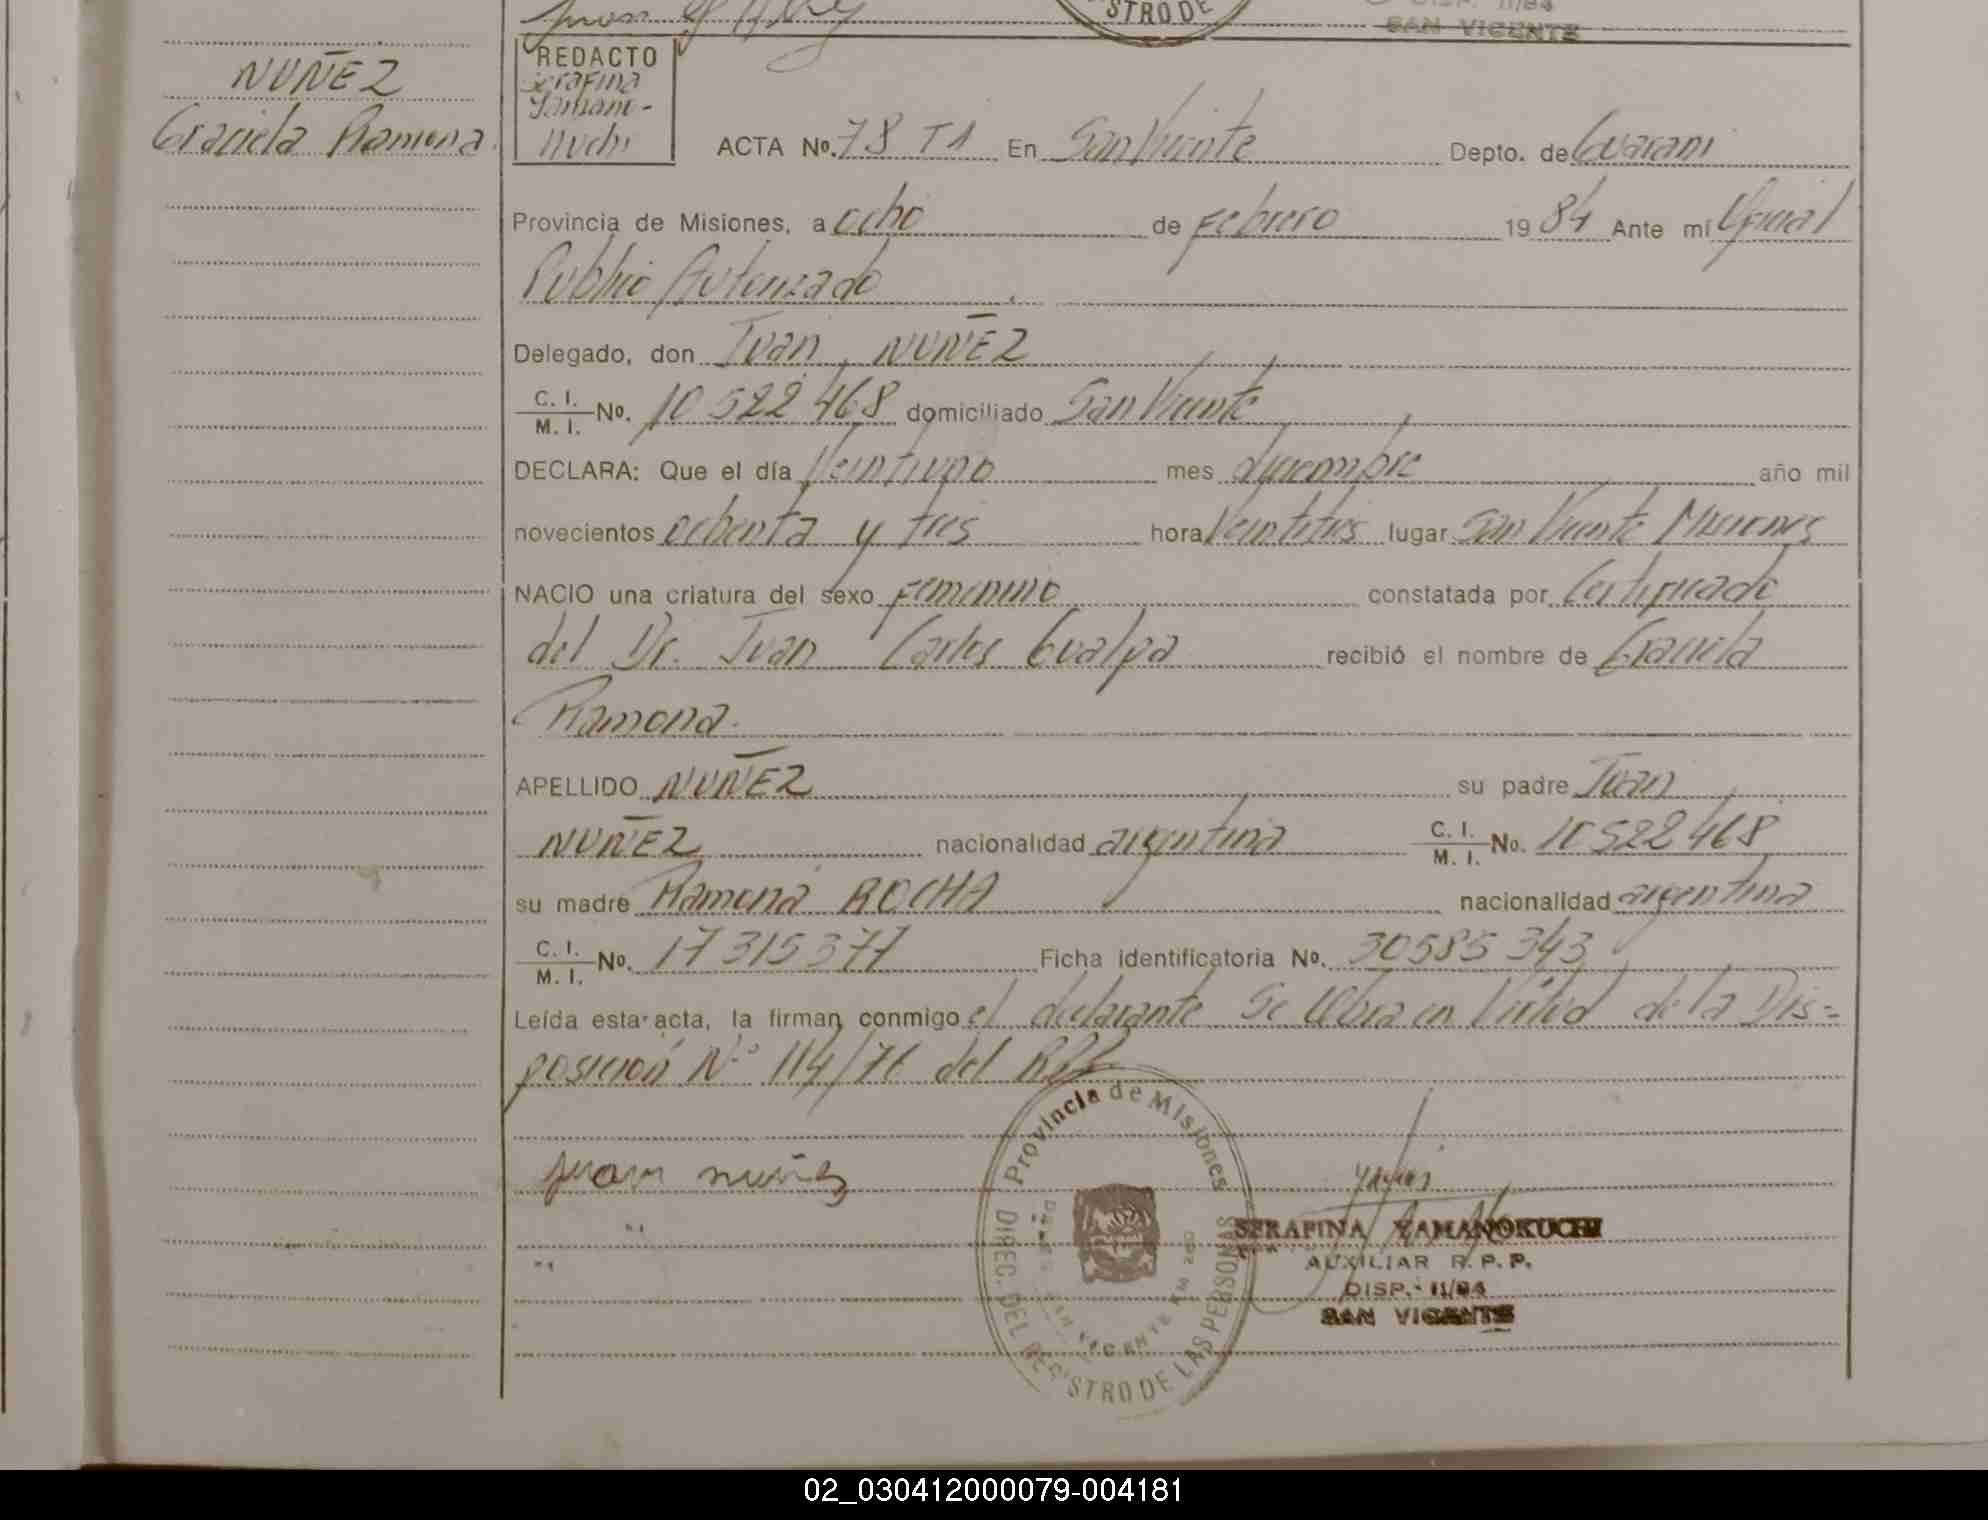 STRO DE
DISP. 11/84
SAN VICENTE
NUÑEZ
Graciela Ramona.
REDACTO
Serafina
Yamano-
kuchi
ACTA No. 78 T1 En San Vicente Depto. de Guarani
Provincia de Misiones, a ocho de Febrero 1984 Ante mí Oficial
Publico Autorizado
Delegado, don Juan NUÑEZ
C. I.
M. I. No. 10 522 468 domiciliado San Vicente
DECLARA: Que el día Veintiuno mes diciembre año mil
novecientos ochenta y tres hora Veintitres lugar San Vicente Misiones
NACIO una criatura del sexo Femenino constatada por Certificado
del Dr. Juan Carlos Gualpa recibió el nombre de Graciela
Ramona.
APELLIDO NUÑEZ su padre Juan
NUÑEZ nacionalidad argentina C. I.
M. I. No. 10 522 468
su madre Ramona ROCHA nacionalidad argentina
C. I.
M. I. No. 17 315 377 Ficha identificatoria No. 30585 343
Leída esta acta, la firman conmigo el declarante Se labra en Virtud de la Dis=
posicion Nº 114/76 del
Provincia de Misiones
DIREC. DEL REGISTRO DE LAS PERSONAS
SAN VICENTE
juan nuñez
SERAFINA YAMANOKUCHI
AUXILIAR R. P. P.
DISP.- 11/84
SAN VICENTE
02_030412000079-004181